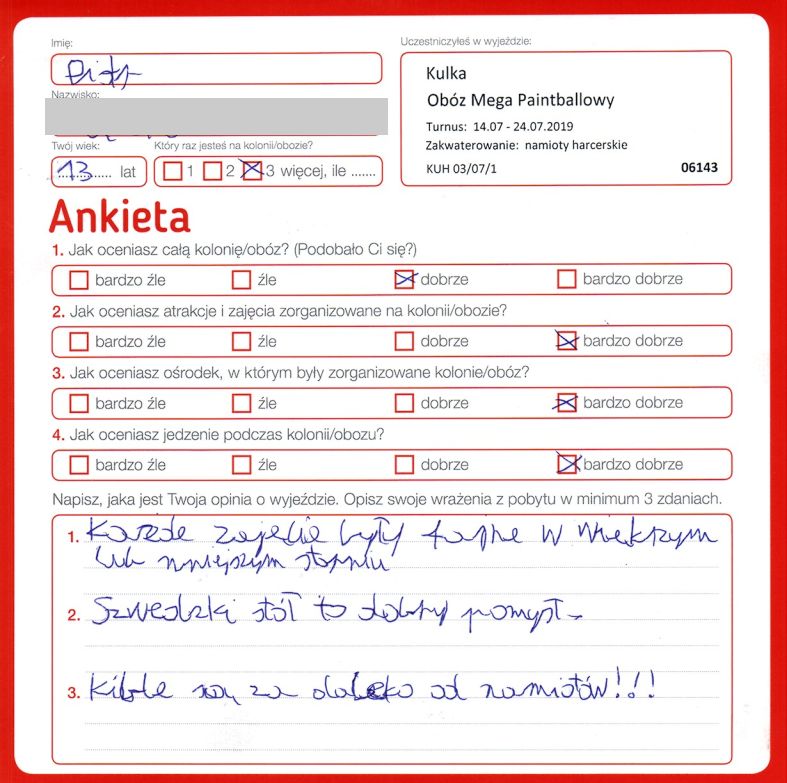 Imię:
Piotr
Uczestniczyłeś w wyjeździe:
Kulka
Obóz Mega Paintballowy
Turnus: 14.07 - 24.07.2019
Zakwaterowanie: namioty harcerskie
KUH 03/07/1 06143
Nazwisko:
Twój wiek:
13 lat
Który raz jesteś na kolonii/obozie?
1 2 3 więcej, ile .......
Ankieta
1. Jak oceniasz całą kolonię/obóz? (Podobało Ci się?)
bardzo źle źle dobrze bardzo dobrze
2. Jak oceniasz atrakcje i zajęcia zorganizowane na kolonii/obozie?
bardzo źle źle dobrze bardzo dobrze
3. Jak oceniasz ośrodek, w którym były zorganizowane kolonie/obóz?
bardzo źle źle dobrze bardzo dobrze
4. Jak oceniasz jedzenie podczas kolonii/obozu?
bardzo źle źle dobrze bardzo dobrze
Napisz, jaka jest Twoja opinia o wyjeździe. Opisz swoje wrażenia z pobytu w minimum 3 zdaniach.
1. Każde zajęcie były fajne w większym
lub mniejszym stopniu
2. Szwedzki stół to dobry pomysł.
3. Kible są za daleko od namiotów!!!